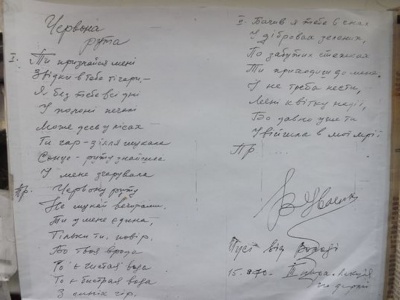 Червона
рута
I. Ти признайся мені
Звідки в тебе ті чари,—
Я без тебе всі дні
У полоні печалі
Може десь у лісах
Ти чар-зілля шукала
Сонце-руту знайшла
І мене зчарувала
Пр. Червону руту
Не шукай вечорами.
Ти у мене єдина,
Тільки ти, повір.
Бо твоя врода
То є чистая вода
То є бистрая вода
З синіх гір.
II. Бачив я тебе в снах
У дібровах зелених,
По забутих стежках
Ти приходиш до мене.
І не треба нести,
Мені квітку надії,
Бо давно уже ти
Увійшла в мої мрії.
Пр